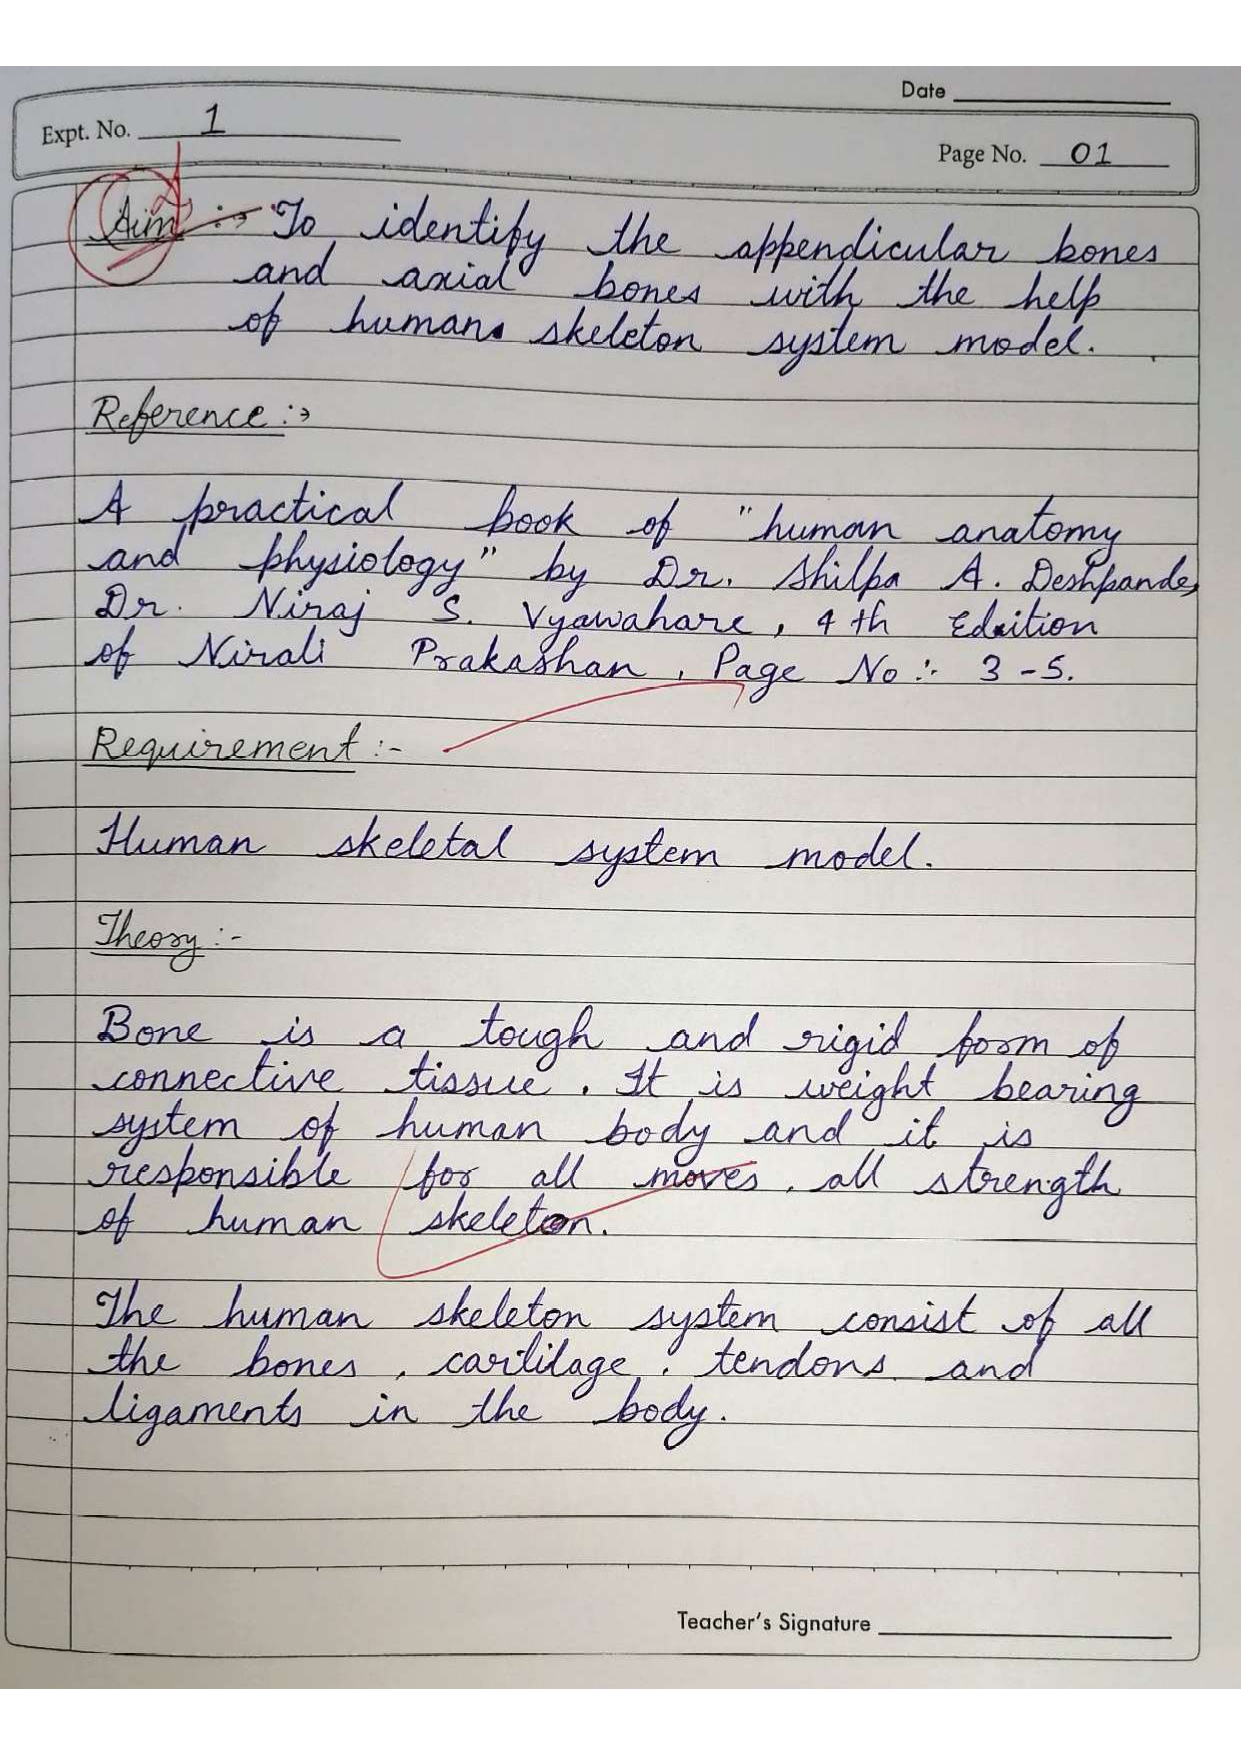 Date
Expt. No. 1
Page No. 01
Aim :→ To identify the appendicular bones
and axial bones with the help
of human skeleton system model.
Reference :→
A practical book of "human anatomy
and physiology" by Dr. Shilpa A. Deshpande,
Dr. Niraj S. Vyawahare, 4th Edition
of Nirali Prakashan, Page No :- 3-5.
Requirement :-
Human skeletal system model.
Theory :-
Bone is a tough and rigid form of
connective tissue. It is weight bearing
system of human body and it is
responsible for all moves, all strength
of human skeleton.
The human skeleton system consist of all
the bones, cartilage, tendons and
ligaments in the body.
Teacher's Signature